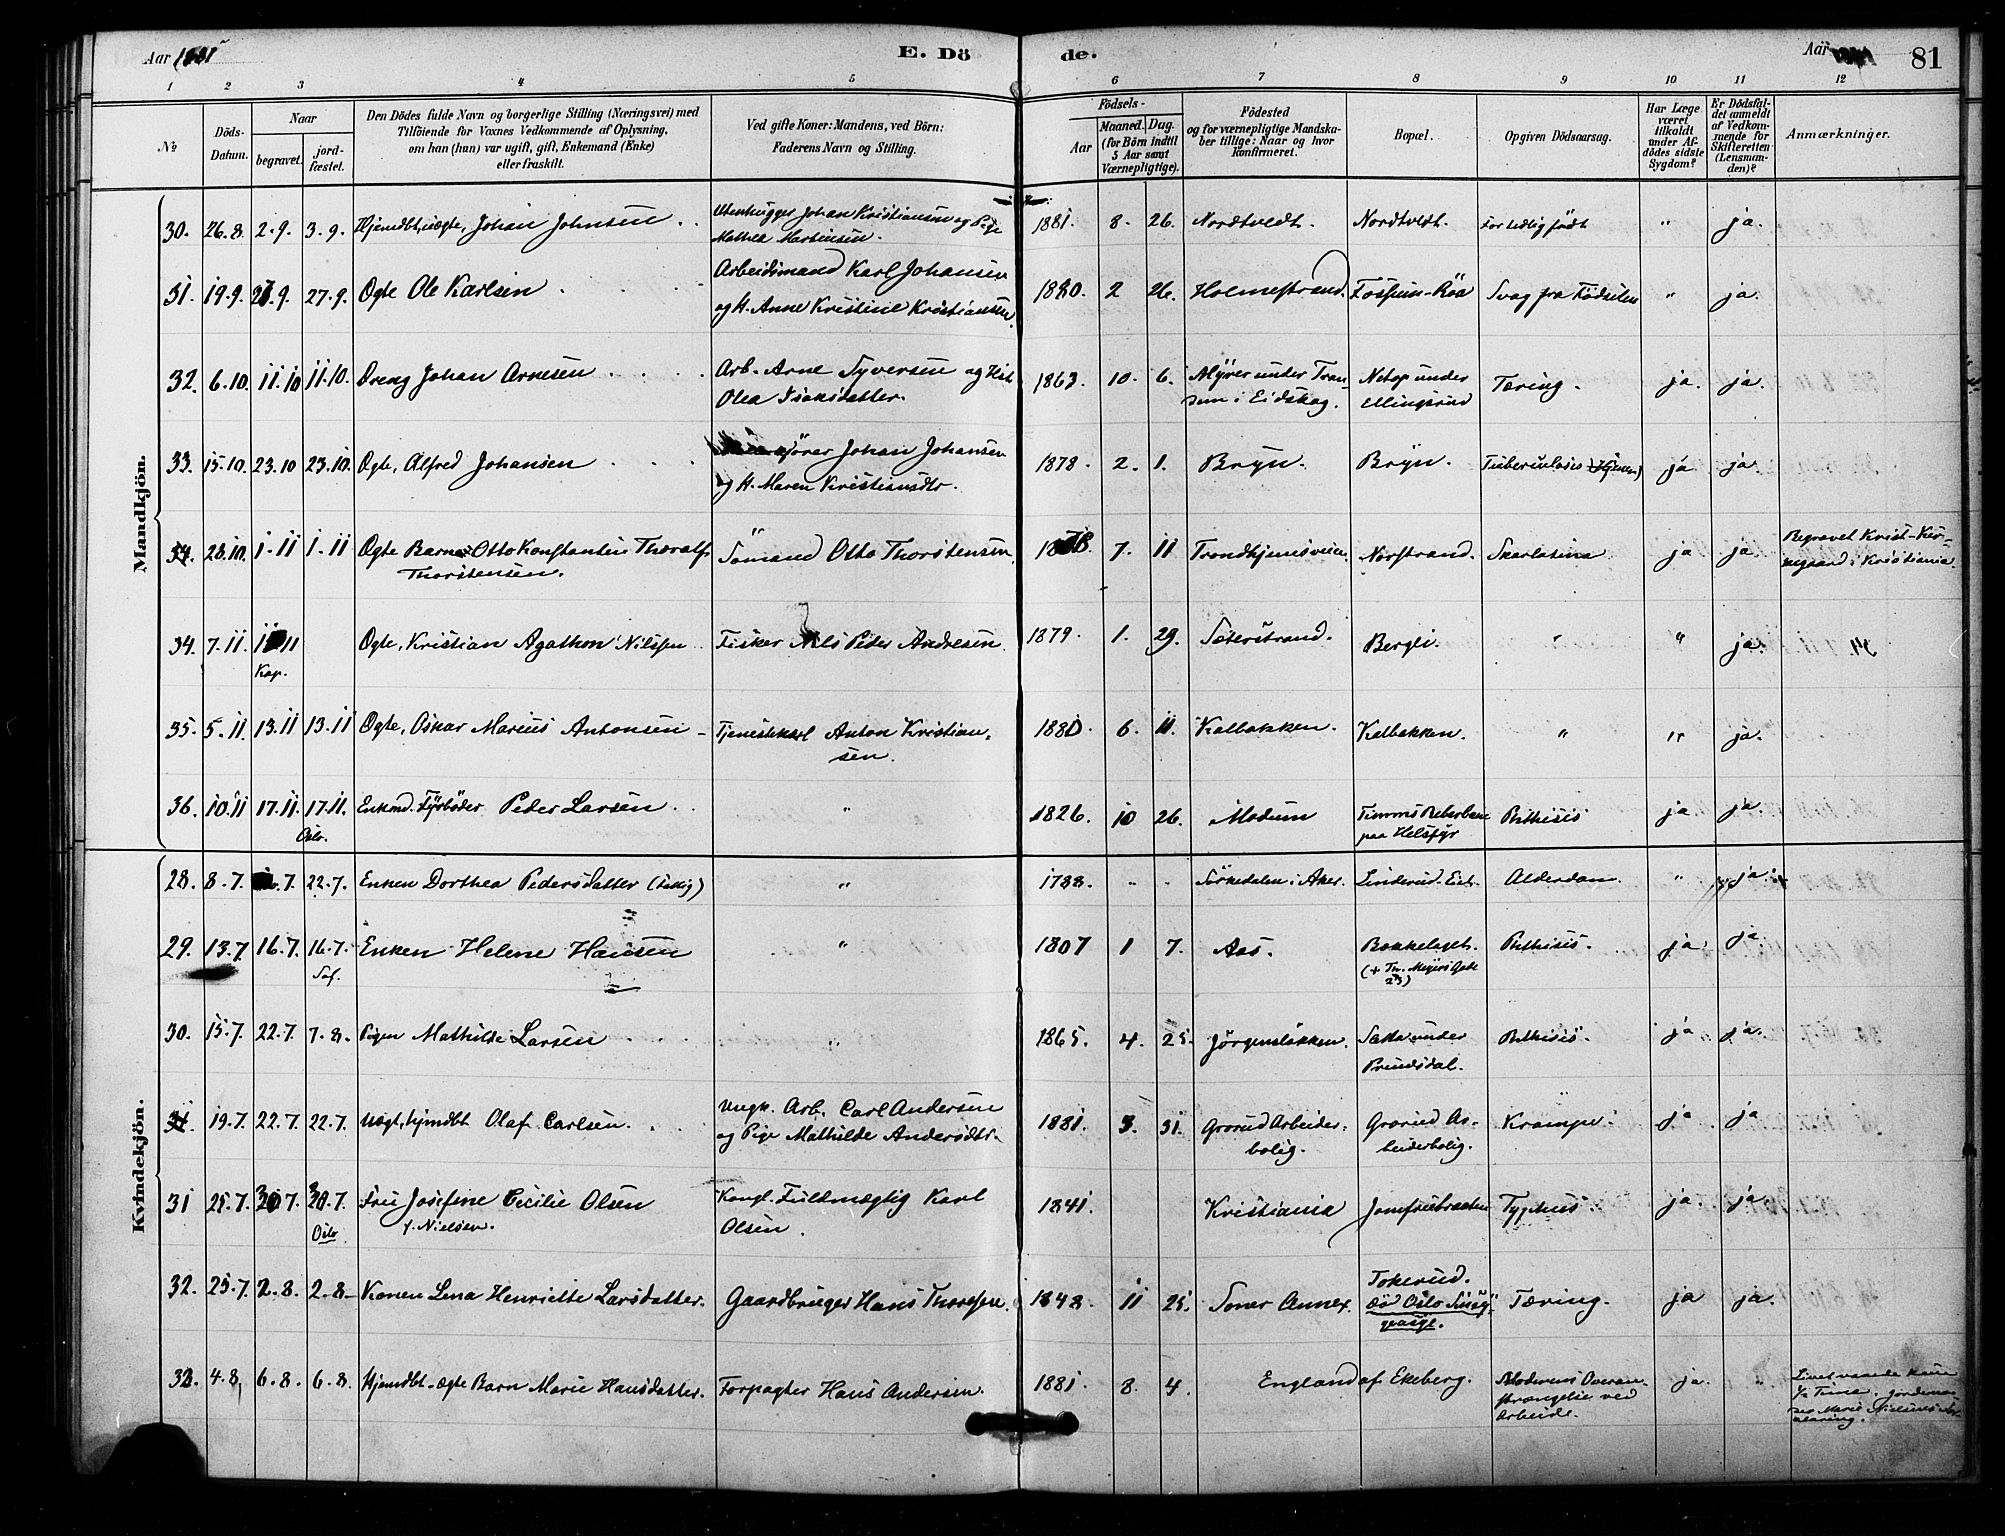 Aar 1881
E. Dö
de.
Aar
81
1 2 3 4 5 6 7 8 9 10 11 12
No
Döds-
Datum.
Naar
begravet.
jord-
fæstet.
Den Dödes fulde Navn og borgerlige Stilling (Næringsvei) med
Tilföiende for Voxnes Vedkommende af Oplysning,
om han (hun) var ugift, gift, Enkemand (Enke)
eller fraskilt.
Ved gifte Koner: Mandens, ved Börn:
Faderens Navn og Stilling.
Födsels-
Aar
Maaned. Dag.
(for Börn indtil
5 Aar samt
Værnepligtige).
Födested
og for værnepligtige Mandska-
ber tillige: Naar og hvor
konfirmeret.
Bopæl.
Opgiven Dödsaarsag.
Har Læge
været
tilkaldt
under Af-
dödes sidste
Sygdom?
Er Dödsfal-
det anmeldt
af Vedkom-
mende for
Skifteretten
(Lensman-
den)?
Anmærkninger.
Mandkjön.
30. 26.8. 2.9. 3.9. Hjemdbt, uægte, Johan Johnsen Johan Kristiansen og Pige 1881. 8. 26. Nordtvedt. Nordtvedt. For tidlig født " ja.
Mathea Martinsen.
31. 19.9. 27.9. 27.9. Ægte Ole Karlsen Arbeidsmand Karl Johansen 1880. 2 26. Holmestrand. Fossum-Röa Svag fra Födselen " ja.
og H. Anne Kristine Kristiansen.
32. 6.10. 11.10 11.10. Dreng Johan Arnesen Arb. Arne Syversen og Hst. 1863. 10. 6. Myrer under Tran- Netop under Tæring. ja. ja.
Olea Isaksdatter. sem i Eidskog. Ellingsrud
33. 15.10. 23.10 23.10. Ægte, Alfred Johansen kjörer Johan Johansen 1878. 2. 1. Bryn. Bryn. Tuberculosis (Hjernen) ja ja.
og H. Maren Kristiansdtr.
34. 28.10. 1.11 1.11 Ægte Barn Otto Konstantin Thoralf Sömand Otto Thorstensen. 1878. 7. 11 Trondhjemsveien Norstrand. Skarlatina ja ja. Begravet Krist-Kir-
Thorstensen. kegaard i Kristiania.
34. 7.11. 11 Ægte, Kristian Agathon Nilssen Fisker Nils Peder Andresen 1879. 1. 29. Sæterstrand. Bergli. " " ja.
Kap.
35. 5.11 13.11 13.11 Ægte, Oskar Marius Antonsen Tjenestekarl Anton Kristian- 1880. 6. 11. Kalbakken. Kalbakken. " " ja.
sen.
36. 10.11 17.11. 17.11. Enkmd. Fyrböder Peder Larsen " 1826. 10 26. Modum Timms Reberbane Phthisis ja ja.
Oslo. paa Helsfyr
Kvindekjön.
28. 8.7. 7. 22.7. Enken Dorthea Pedersdatter (Fattig) " 1788. " " Sörkedalen i Aker. Linderud-Eie. Alderdom. " ja.
29. 13.7 16.7. 16.7. Enken Helene Hansen " 1807 1 7. Aas. Bækkelaget. Phthisis. ja. ja.
Sof. (+ Th. Meyers Gade
23)
30. 15.7. 22.7. 7.8. Pigen Mathilde Larsen " 1865. 4. 25. Jörgensløkken. Sæter under Phthisis. ja ja.
Prindsdal.
31. 19.7. 22.7. 22.7. Uægt, hjmdbt Olaf Carlsen. Ungk. Arb. Carl Andersen 1881. 3. 31. Grorud Arbeider- Grorud Ar- Krampe ja ja
og Pige Mathilde Andersdtr. bolig. beiderbolig.
31 25.7. 30.7. 30.7. Fru Josefine Cecilie Olsen Kongl. Fuldmægtig Karl 1841. Kristiania Jomfrubraaten Typhus ja ja.
Oslo. f. Nielsen. Olsen.
32. 25.7. 2.8. 2.8. Konen Lena Henriette Larsdatter. Gaardbruger Hans Thoresen. 1848. 11 25. Soner Annex. Tokerud. Tæring. ja ja.
Död Oslo
32. 4.8. 6.8. 6.8. Hjemdbt. ægte Barn Marie Hansdatter. Forpagter Hans Andersen. 1881. 8. 4. England af Ekeberg. Moderens Overan- ja. " Livet varede kun
strængelse ved ½ Time. Jordemo-
Arbeide. der Marie Nielsens Er-
klæring.